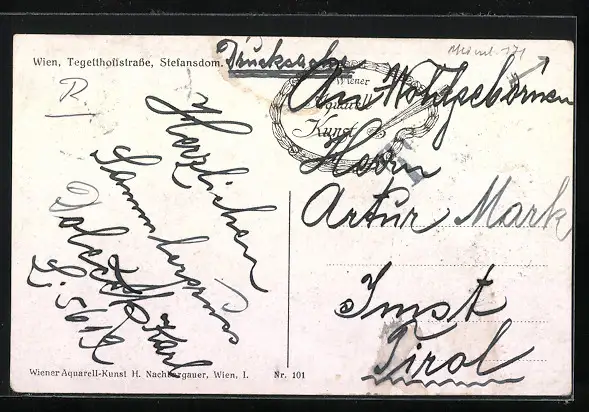 Wien, Tegetthoffstraße, Stefansdom.
Drucksache
Wiener
Aquarell
Kunst
An Wohlgeboren
Herrn
Artur Mark
Imst
Tirol
R
Herzlichen
Karl
Wiener Aquarell-Kunst H. Nachbargauer, Wien, I. Nr. 101